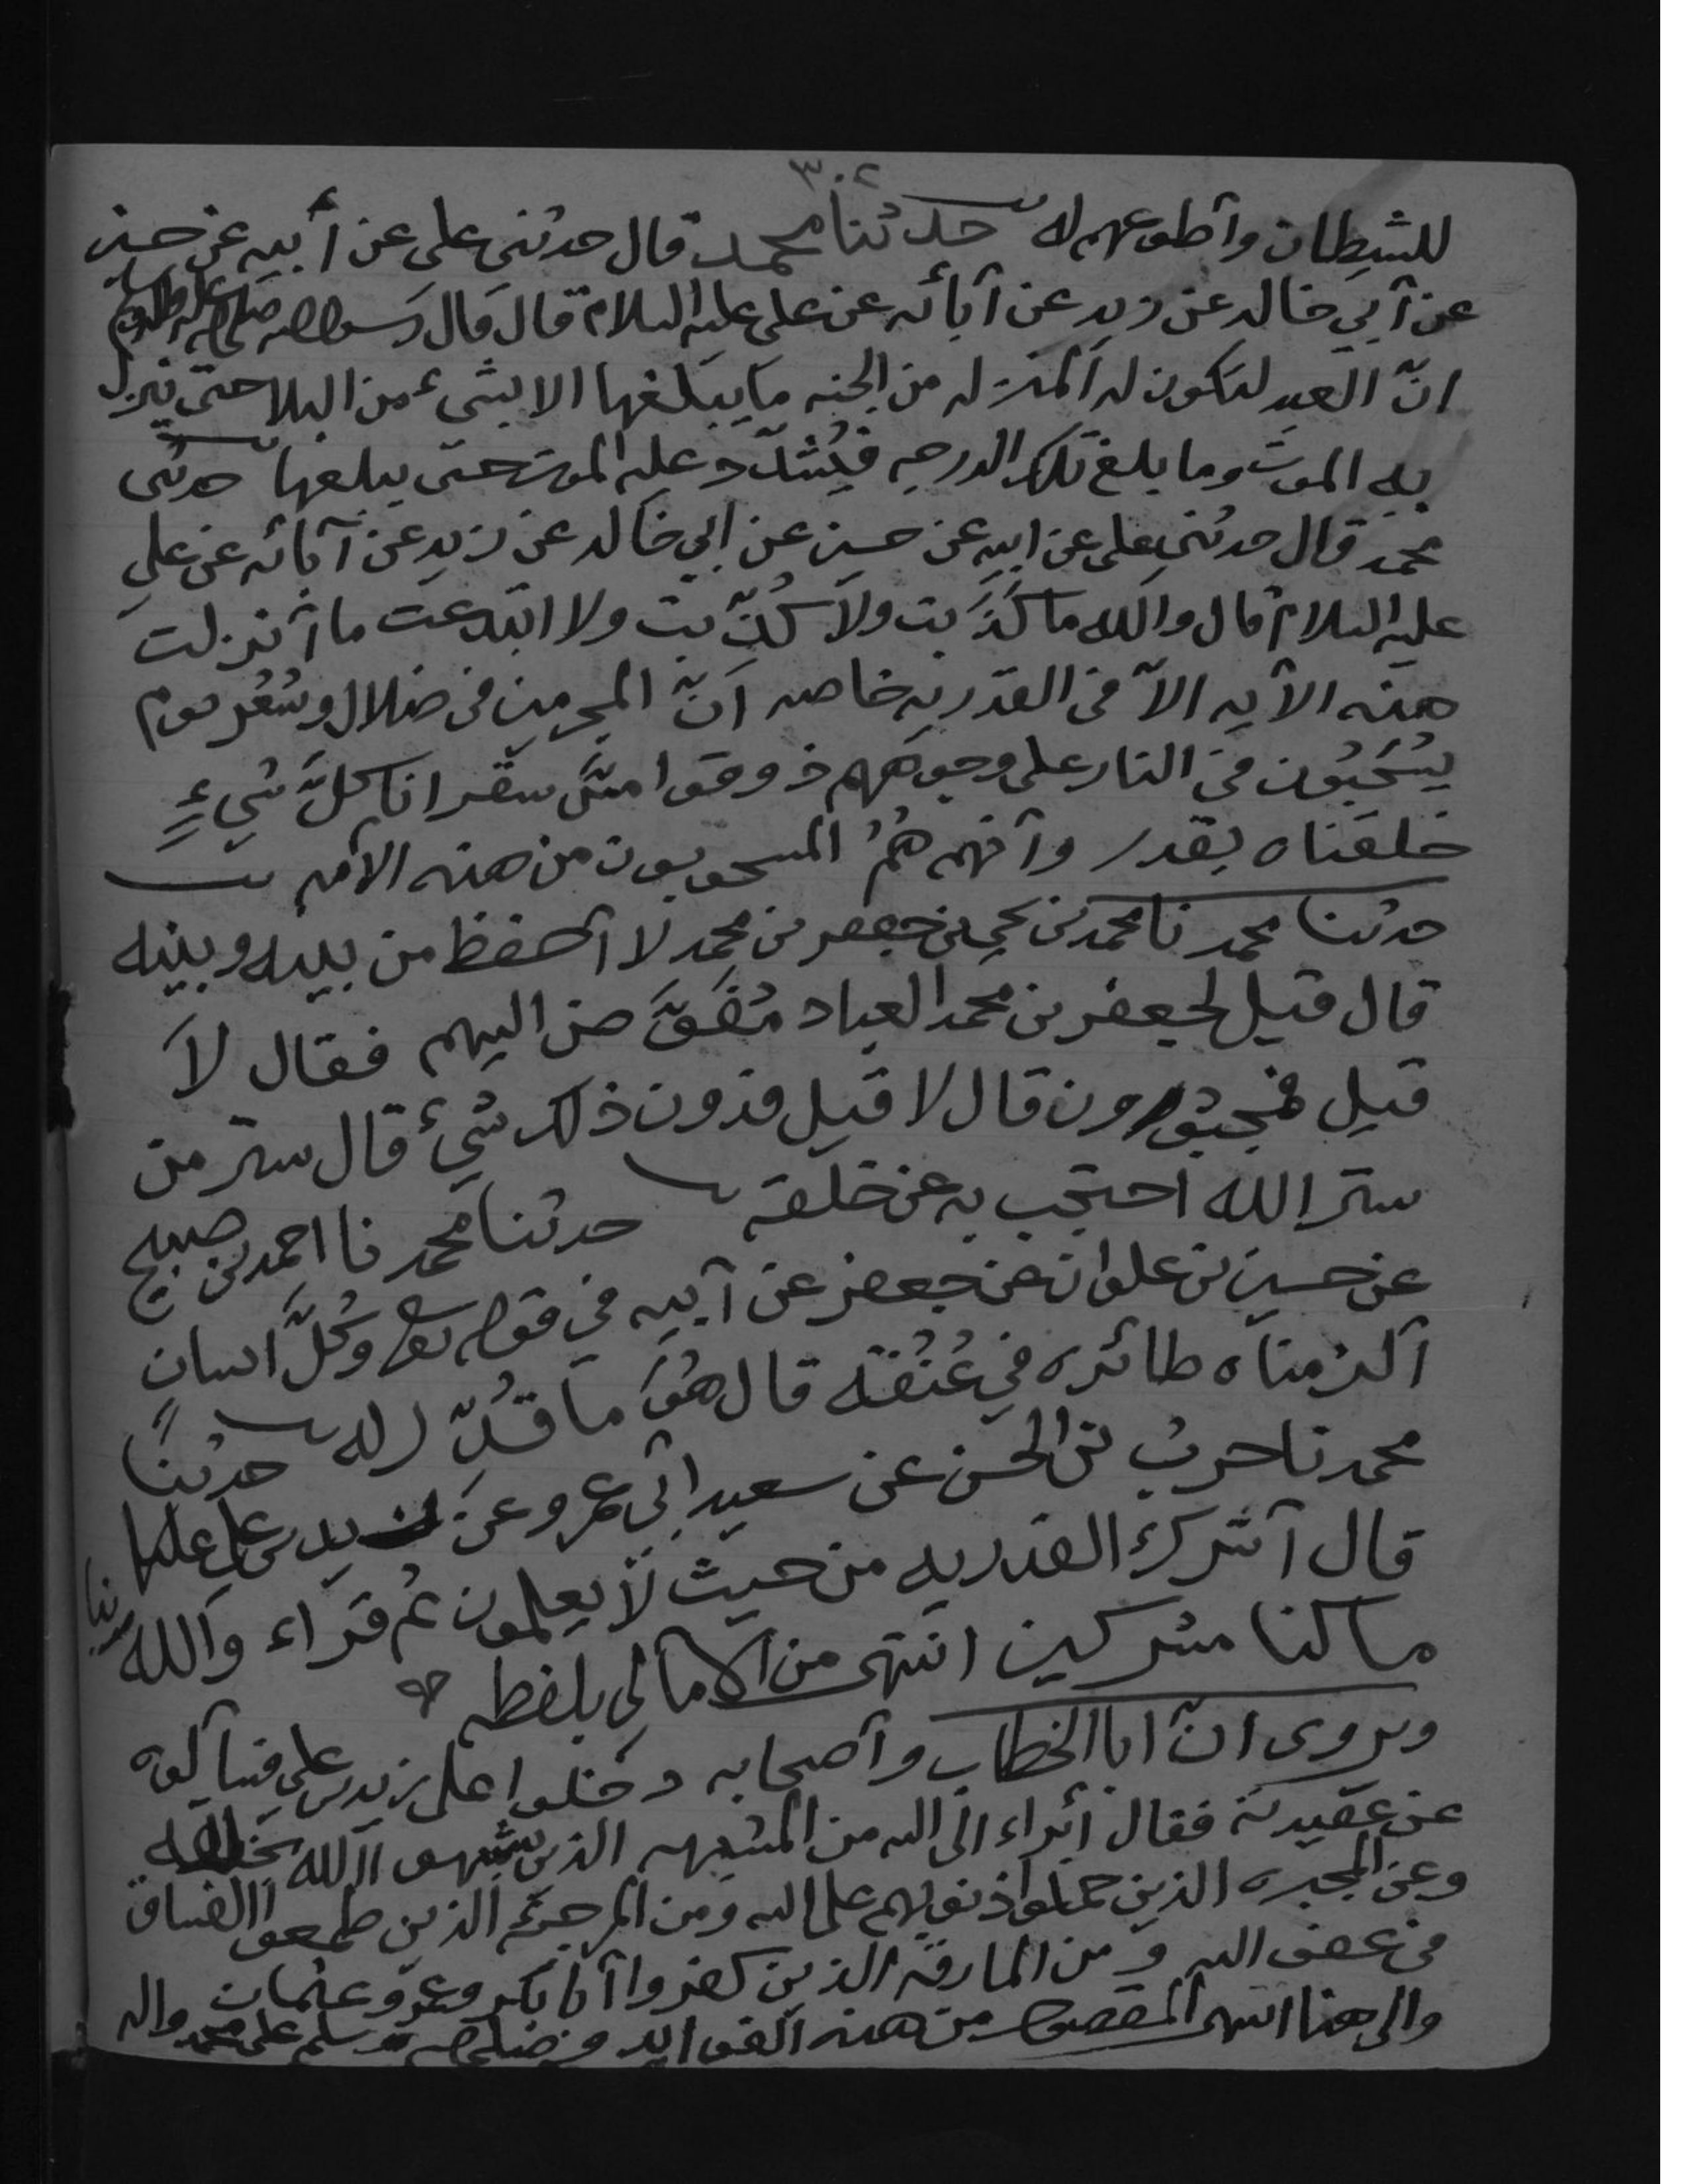 ٣٠٤
للشيطان وأطوعهم له حدثنا محمد قال حدثني علي عن أبيه عن حسين
عن أبي خالد عن زيد عن آبائه عن علي عليه السلام قال قال رسول الله صلى الله عليه وآله وسلم
انّ العبد لتكون له المنزله من الجنه ما يبلغها الا بشيء من البلا حتى ينزل
به الموت وما بلغ تلك الدرجه فيُشدّد عليه الموت حتى يبلغها حدثنى
محمد قال حدثني علي عن ابيه عن حسين عن ابي خالد عن زيد عن آبائه عن علي
عليه السلام قال والله ما كذَبت ولا كُذّبت ولا ابتدعت ما أنزلت
هذه الآيه الاّ في القدريه خاصه انّ المجرمين في ضلال وسُعُر يوم
يُسْحَبُون في النار على وجوههم ذوقوا مسّ سقر انا كلّ شيءٍ
خلقناه بقدر وأنهم هُمُ المسحوبون من هذه الأمه
حدثنا محمد نا محمد بن يحي بن جعفر بن محمد لا أحفظ من بيده وبينه
قال قيل لجعفر بن محمد العباد مُفَوَّض اليهم فقال لاَ
قيل فمجبورون قال لا قيل فدون ذلك شيء قال ستر من
ستر الله احتجب به عن خلقه حدثنا محمد نا احمد بن صبيح
عن حسين بن علوان عن جعفر عن أبيه في قوله تعالى وكُلَّ انسانٍ
ألزمناه طائره في عُنُقه قال هُوَ ما قُدّر له حدثنا
محمد نا حرب بن الحسن عن سعيد ابي عمرو عن زيد بن علي عليهما
قال أشرك القدريه من حيث لا يعلمون ثم قراء والله ربنا
ما كنا مشركين انتهى من الامالي بلفظه
ويروى انّ ابا الخطاب وأصحابه دخلوا على زيد بن علي فسألوه
عن عقيدته فقال أبراء الى الله من المشبهه الذين شبهوا الله بخلقه
وعن المجبره الذين حملوا ذنوبهم على الله ومن المرجئه الذين طمعوا الفساق
في عفو الله ومن المارقه الذين كفروا أبا بكر وعمر وعثمان
والى هنا انتهى المقصود من هذه الفوائد وصلى الله وسلم على محمد واله